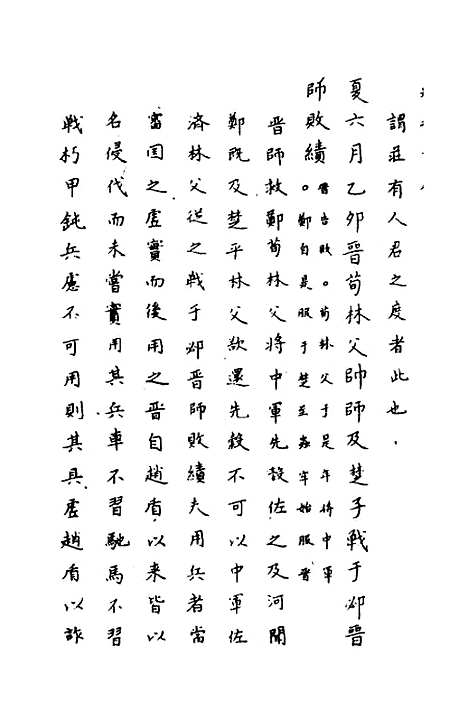 謂莊有人君之度者此也。
夏六月乙夘晉荀林父帥師及楚子戰于邲晉
師敗績。晉告敗。荀林父于是年將中軍
鄭自是服于楚至襄年始服晉
晉師救鄭荀林父將中軍先縠佐之及河聞
鄭既及楚平林父欲還先縠不可以中軍佐
济林父從之戰于邲晉師敗績夫用兵者當
審囯之虛實而後用之晉自趙盾以来皆以
名侵伐而未嘗實用其兵車不習馳馬不習
戰朽甲鈍兵慮不可用則其具虛趙盾以詐